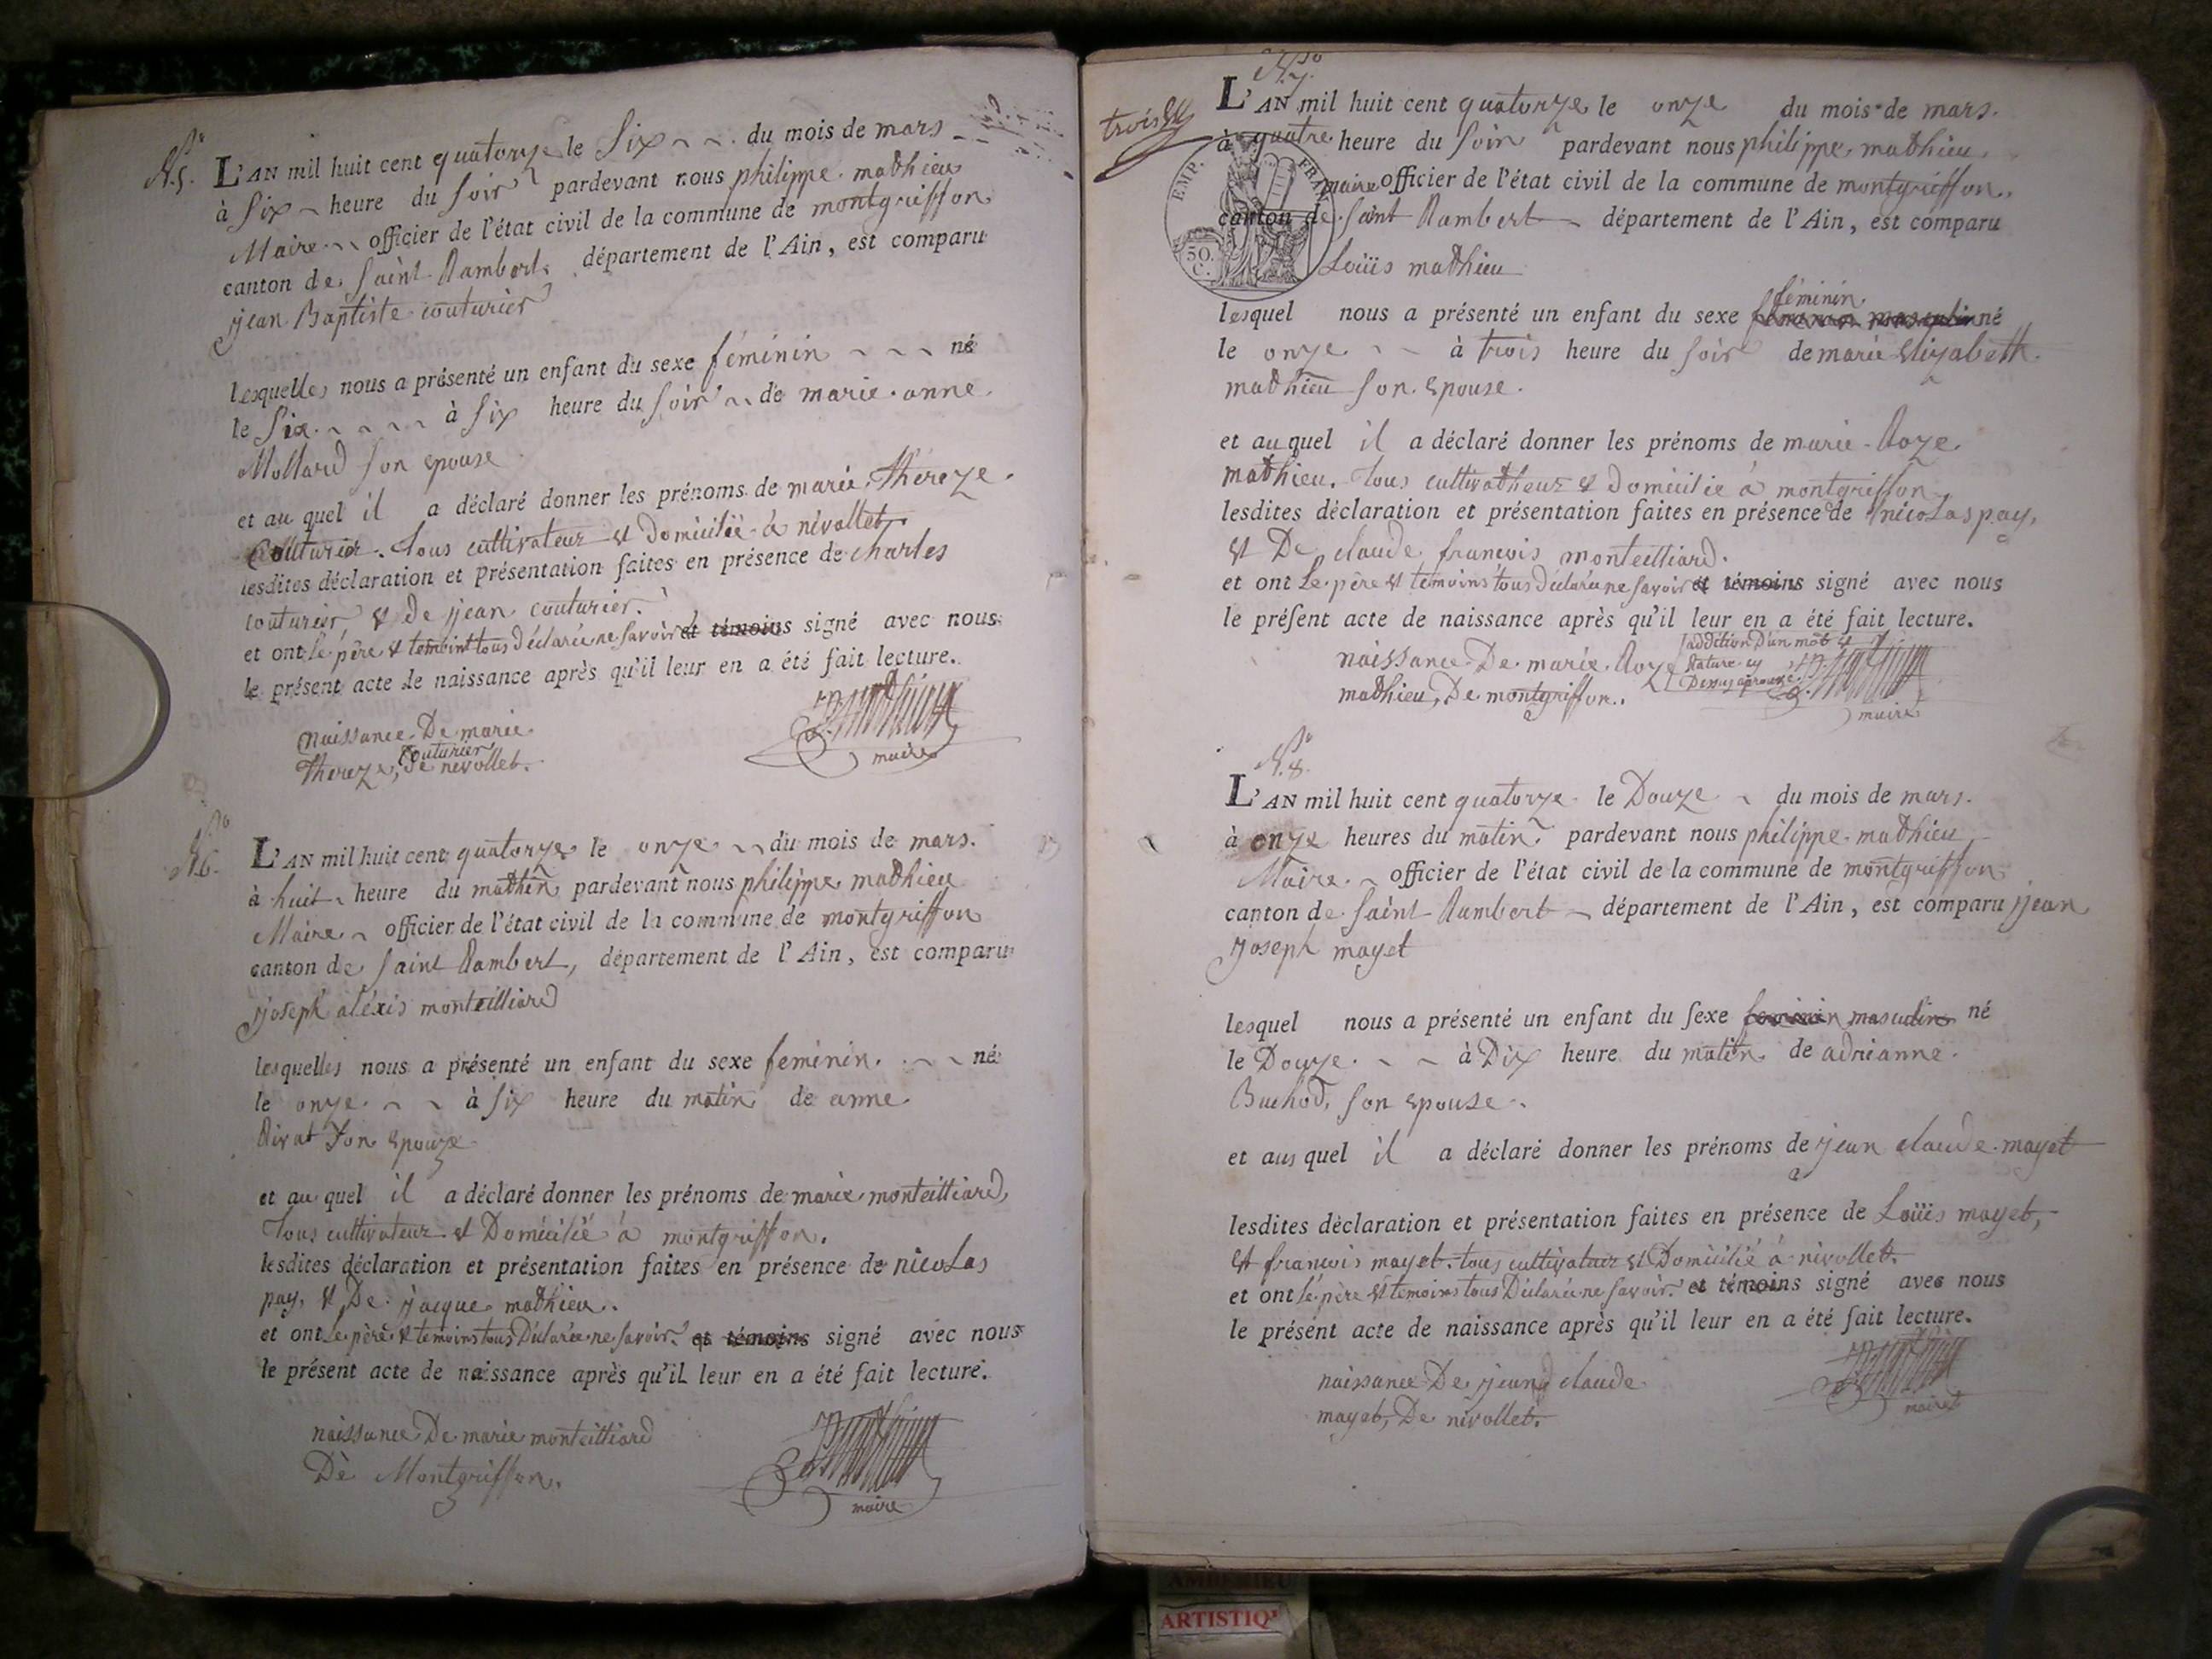 N.º 5.
L'AN mil huit cent quatorze le Six du mois de mars
à Six heure du soir pardevant nous philippe mathieu
Maire officier de l'état civil de la commune de montgriffon
canton de saint Rambert département de l'Ain, est comparu
jean Baptiste couturier
lesquelles nous a présenté un enfant du sexe féminin né
le Six à six heure du soir de marie anne
Mollard son epouse
et au quel il a déclaré donner les prénoms de marie Thereze
Couturier. tous cultivateur et Domicilié à nivollet.
lesdites déclaration et présentation faites en présence de charles
couturier et de jean couturier.
et ont le père et temoint tous déclarée ne savoir et témoins signé avec nous
le présent acte de naissance après qu'il leur en a été fait lecture.
naissance De marie
couturier
Thereze, De nivollet.
maire
N.º 6.
L'AN mil huit cent quatorze le onze du mois de mars.
à huit heure du mathin pardevant nous philippe mathieu
Maire officier de l'état civil de la commune de montgriffon
canton de saint Rambert, département de l'Ain, est comparu
joseph aléxis monteilliard
lesquelles nous a présenté un enfant du sexe feminin. né
le onze à six heure du matin de anne
Rivat son epouze
et au quel il a déclaré donner les prénoms de marie monteilliard,
Tous cultivateur et Domicilié à montgriffon.
lesdites déclaration et présentation faites en présence de nicolas
pay, et De jacque mathieu.
et ont le père et temoins tous Déclarée ne savoir et témoins signé avec nous
le présent acte de naissance après qu'il leur en a été fait lecture.
naissance De marie monteilliard
De Montgriffon.
maire
N.º 7.
trois
L'AN mil huit cent quatorze le onze du mois de mars.
à quatre heure du soir pardevant nous philippe mathieu
maire officier de l'état civil de la commune de montgriffon.
canton de saint Rambert département de l'Ain, est comparu
EMP. FRAN
50.
C.
Loüis mathieu
féminin
lesquel nous a présenté un enfant du sexe féminin masculin né
le onze à trois heure du soir de marie Elizabeth
mathieu son epouse.
et au quel il a déclaré donner les prénoms de marie Roze
mathieu. Tous cultivatheur et Domicilié à montgriffon
lesdites déclaration et présentation faites en présence de nicolas pay,
et De claude francois monteilliard.
et ont le père et témoins tous déclarée ne savoir et témoins signé avec nous
le présent acte de naissance après qu'il leur en a été fait lecture.
naissance De marie Roze
mathieu, De montgriffon.
addition D'un mot et
Rature
Dessus aprouve
maire
N.º 8.
L'AN mil huit cent quatorze le Douze du mois de mars.
à onze heures du matin pardevant nous philippe mathieu
Maire officier de l'état civil de la commune de montgriffon
canton de saint Rambert département de l'Ain, est comparu jean
joseph mayet
lesquel nous a présenté un enfant du sexe feminin masculin né
le Douze à Dix heure du matin de adrianne
Buchod, son epouse.
et aus quel il a déclaré donner les prénoms de jean claude mayet
lesdites déclaration et présentation faites en présence de Loüis mayet,
et francois mayet. tous cultivateur et Domicilié à nivollet.
et ont le père et temoins tous Déclarée ne savoir et témoins signé avec nous
le présent acte de naissance après qu'il leur en a été fait lecture.
naissance De jean claude
mayet, De nivollet.
maire
AMBERIEU
ARTISTIQ'